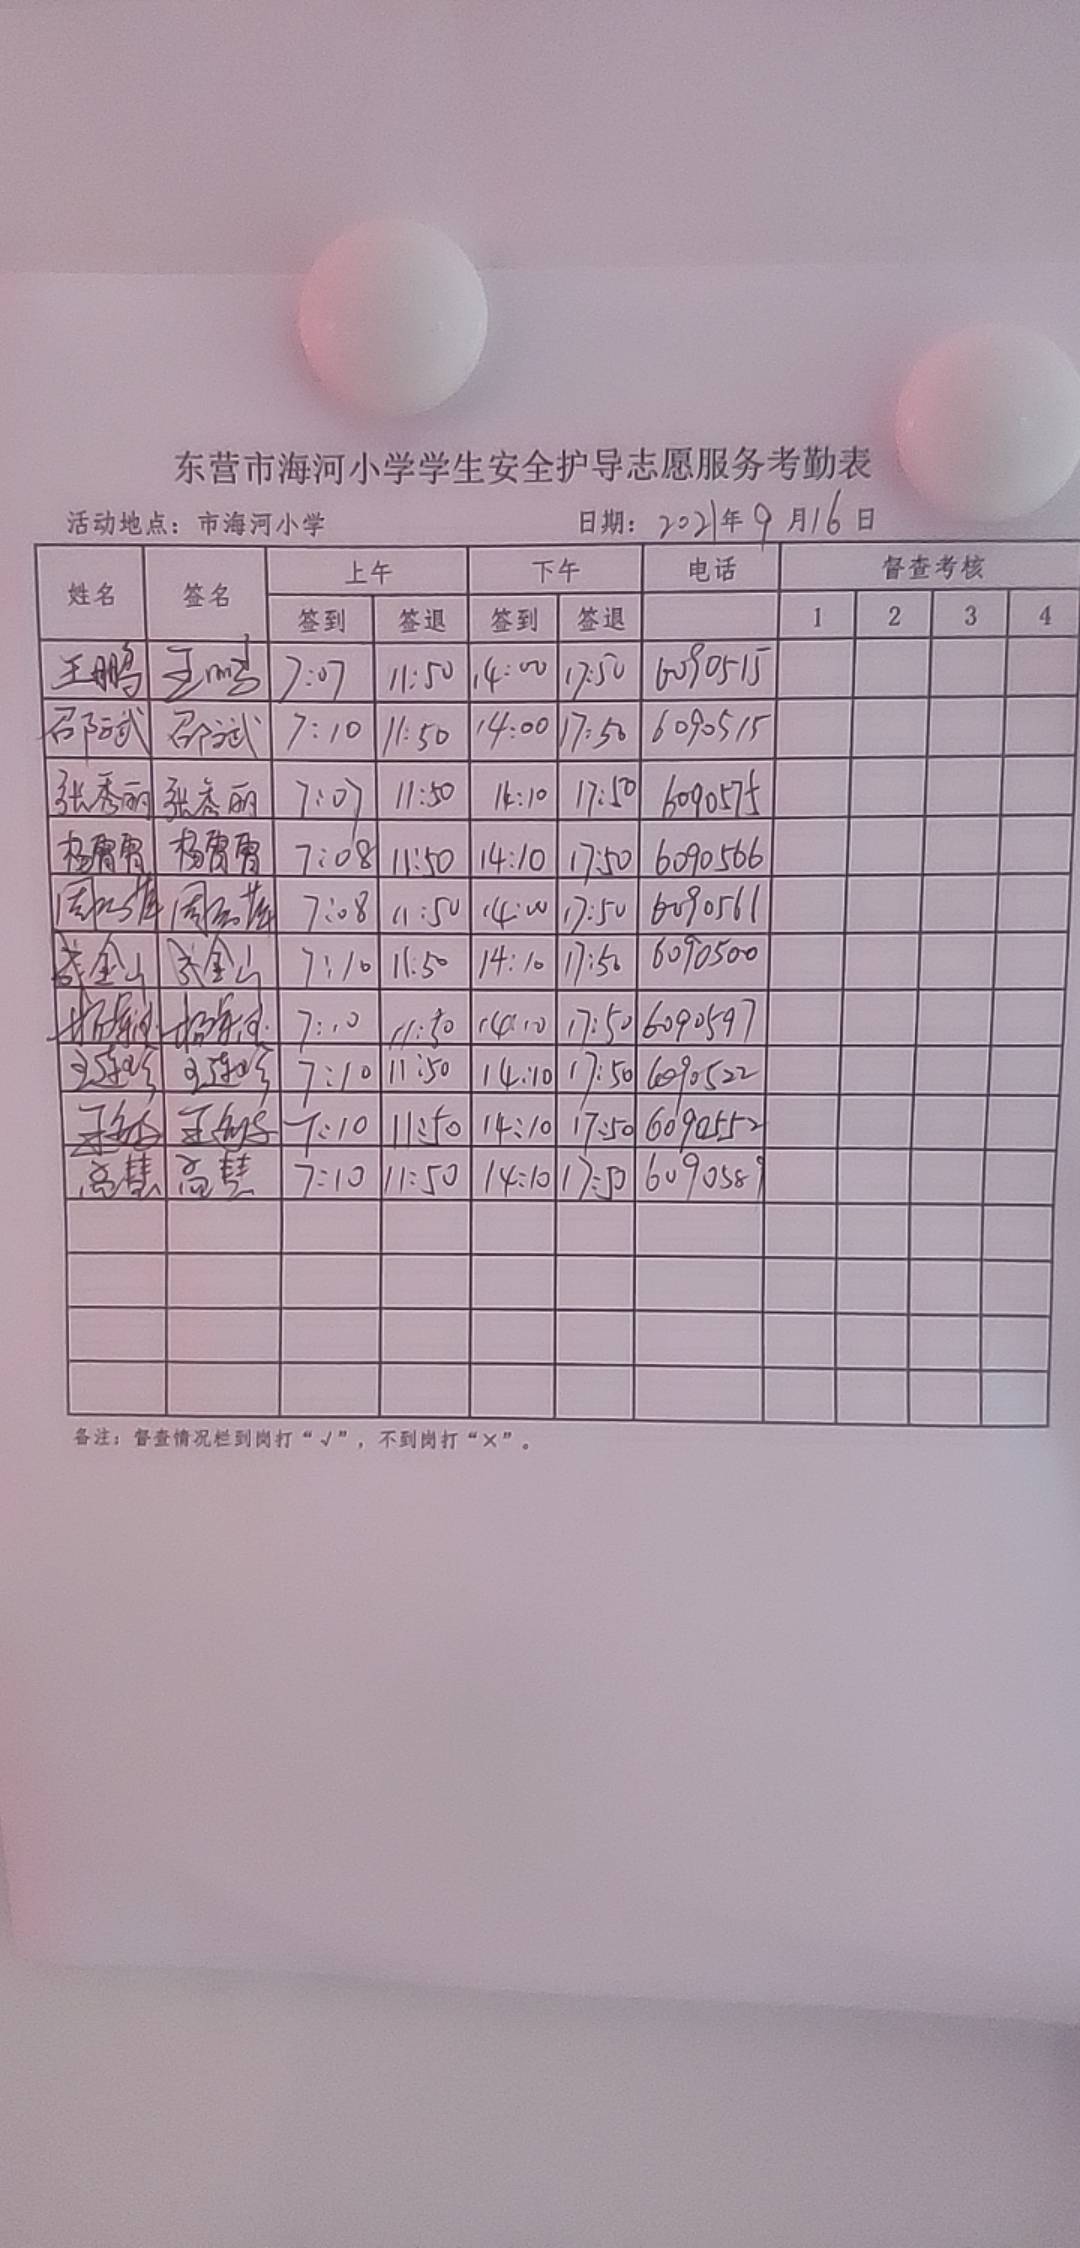 东营市海河小学学生安全护导志愿服务考勤表
活动地点：市海河小学 日期：2021年9月16日
姓名 签名 上午 下午 电话 督查考核
签到 签退 签到 签退 1 2 3 4
王鹏 王鹏 7:07 11:50 14:00 17:50 6090515
邵斌 邵斌 7:10 11:50 14:00 17:50 6090515
张秀丽 张秀丽 7:07 11:50 14:10 17:50 6090575
杨霄霄 杨霄霄 7:08 11:50 14:10 17:50 6090566
周 周 7:08 11:50 14:00 17:50 6090561
金山 金山 7:10 11:50 14:10 17:50 6090500
7:10 11:50 14:10 17:50 6090597
7:10 11:50 14:10 17:50 6090522
王 王 7:10 11:50 14:10 17:50 6090552
高慧 高慧 7:10 11:50 14:10 17:50 6090589
备注：督查情况栏到岗打“√”，不到岗打“×”。